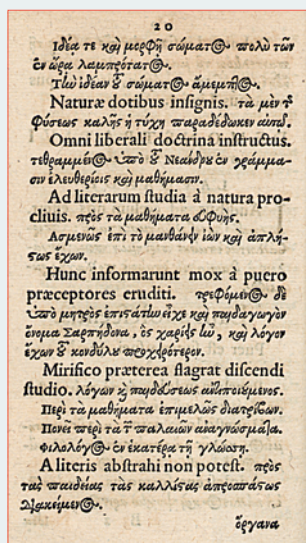 20
Ἰδέα τε καὶ μορφῇ σώματος πολὺ τῶν
ἐν ὥρᾳ λαμπρότατος.
Τὴν ἰδέαν τοῦ σώματος ἄμεμπτος.
Naturæ dotibus insignis. τὰ μὲν τῆς
φύσεως καλῆς ἡ τύχη παραδέδωκεν αὐτῷ.
Omni liberali doctrina instructus.
τεθραμμένος ὑπὸ τοῦ Νεάνδρου ἐν γράμμα-
σιν ἐλευθερίοις καὶ μαθήμασιν.
Ad literarum studia à natura pro-
cliuis. πρὸς τὰ μαθήματα εὐφυής.
Ἀσμενῶς ἐπὶ τὸ μανθάνειν ἰὼν καὶ ἀπλή-
στως ἔχων.
Hunc informarunt mox à puero
præceptores eruditi. τρεφόμενος δὲ
ὑπὸ μητρὸς ἐπιστάτην εἶχε καὶ παιδαγωγὸν
ὄνομα Σαρπήδονα, ὃς χαρίεις ἦν, καὶ λόγον
ἔχων τοῦ κονδύλου προχειρότερον.
Mirifico præterea flagrat discendi
studio. λόγων καὶ παιδεύσεως ἀντιποιούμενος.
Περὶ τὰ μαθήματα ἐπιμελῶς διατρίβων.
Πονεῖ περὶ τὰ τῶν παλαιῶν ἀναγνώσματα.
Φιλολόγος ἐν ἑκατέρᾳ τῇ γλώσσῃ.
A literis abstrahi non potest. πρὸς
τὰς παιδείας τὰς καλλίστας ἀπροσπάστως
διακείμενος.
ὄργανα